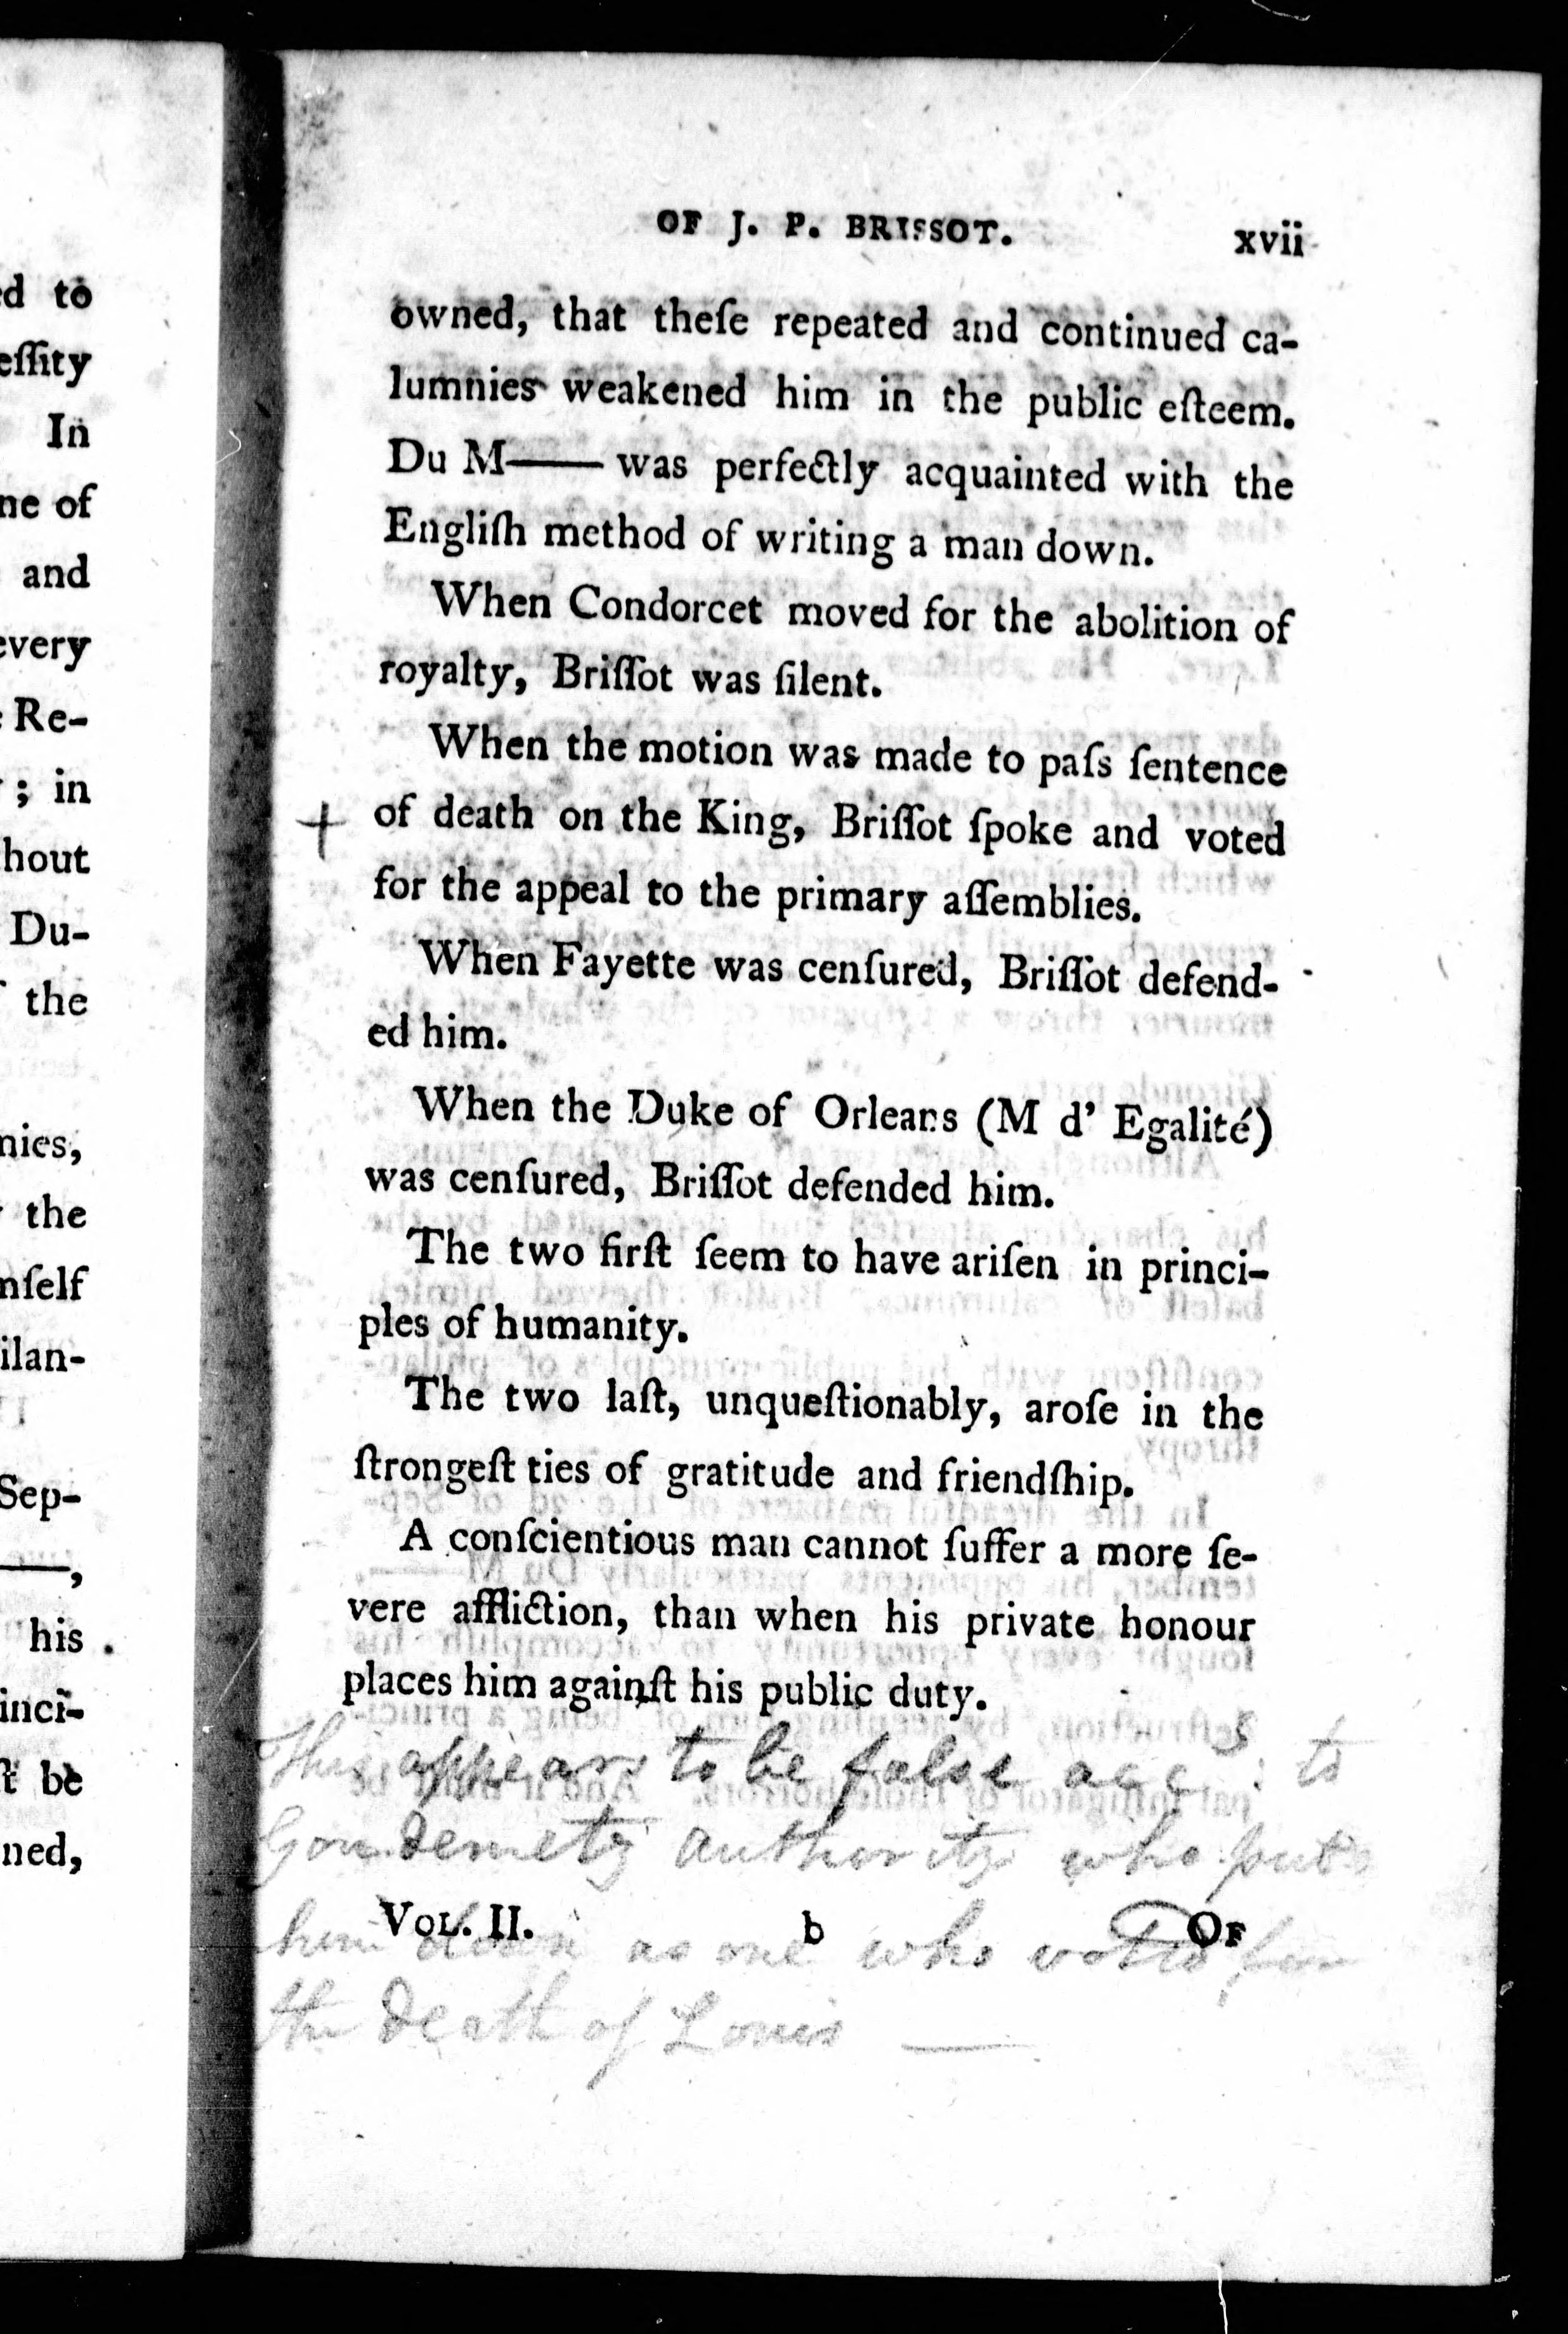 d to
eſſity
In
ne of
and
every
Re-
; in
hout
Du-
the
nies,
the
mſelf
ilan-
Sep-
——,
his
inci-
t be
ned,
OF J. P. BRISSOT. xvii
owned, that theſe repeated and continued ca-
lumnies weakened him in the public eſteem.
Du M—— was perfectly acquainted with the
Engliſh method of writing a man down.
When Condorcet moved for the abolition of
royalty, Briſſot was ſilent.
When the motion was made to paſs ſentence
+ of death on the King, Briſſot ſpoke and voted
for the appeal to the primary aſſemblies.
When Fayette was cenſured, Briſſot defend-
ed him.
When the Duke of Orleans (M d' Egalité)
was cenſured, Briſſot defended him.
The two firſt ſeem to have ariſen in princi-
ples of humanity.
The two laſt, unqueſtionably, aroſe in the
ſtrongeſt ties of gratitude and friendſhip.
A conſcientious man cannot ſuffer a more ſe-
vere affliction, than when his private honour
places him againſt his public duty.
This appears to be false acc^s: to
authority who puts
VOL. II. b OF
him down as one who voted for
the death of Louis —